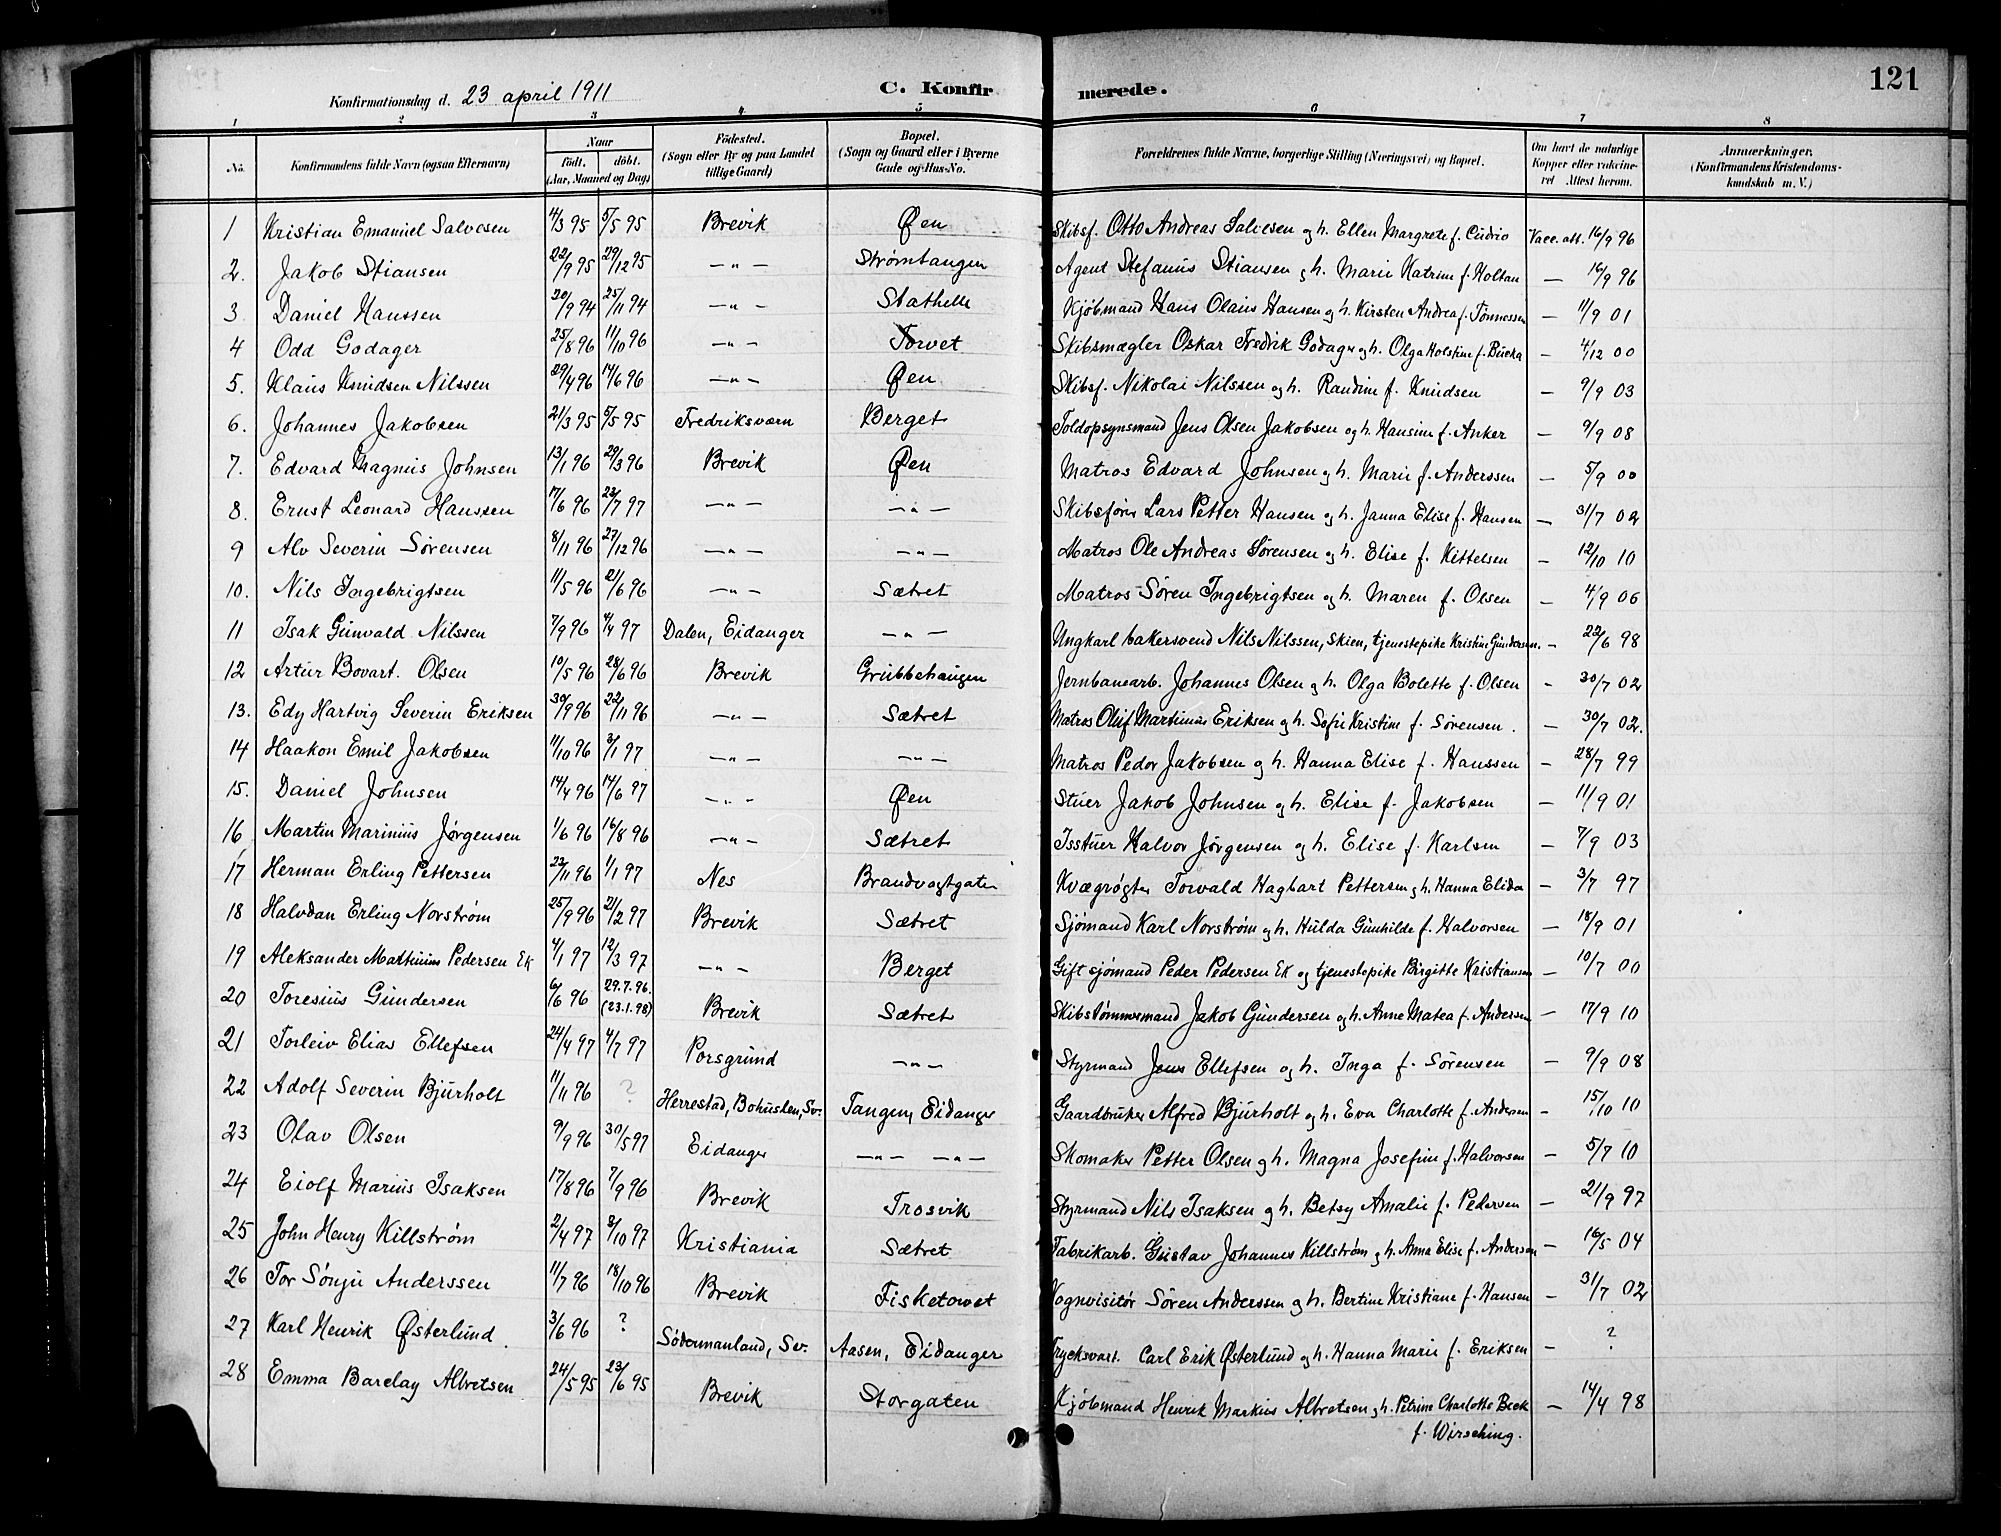 121
Konfirmationsdag d. 23 april 1911 C. Konfirmerede.
1 2 3 4 5 6 7 8
No. Konfirmandens fulde Navn (ogsaa Efternavn) Naar født. døbt. (Aar, Maaned og Dag) Fødested. (Sogn eller By og paa Landet tillige Gaard) Bopæl. (Sogn og Gaard eller i Byerne Gade og Hus-No. Forældrenes fulde Navne, borgerlige Stilling (Næringsvei) og Bopæl. Om havt de naturlige Kopper eller vakcineret Attest herom. Anmærkninger. (Konfirmandens Kristendomskundskab m. V.)
1 Kristian Emanuel Salvesen 4/3 95 5/5 95 Brevik Øen Skibsf. Otto Andreas Salvesen og h. Ellen Margrete f. Cudrio Vacc. att. 16/9 96
2. Jakob Stiansen 22/9 95 29/12 95 —"— Strømtangen Agent Stefanus Stiansen og h. Marie Katrine f. Holtan — 16/9 96
3. Daniel Hanssen 20/9 94 25/11 94 —"— Stathelle Kjøbmand Hans Olaus Hansen og h. Kirsten Andrea f. Tønnessen — 11/9 01
4 Odd Godager 25/8 96 11/10 96 —"— Torvet Skibsmægler Oskar Fredrik Godager og h. Olga Holstine f. Bucka — 4/12 00
5. Klaus Knudsen Nilssen 29/4 96 14/6 96 —"— Øen Skibsf. Nikolai Nilssen og h. Randine f. Knudsen — 9/9 03
6. Johannes Jakobsen 21/3 95 5/5 95 Fredriksværn Berget Toldopsynsmand Jens Olsen Jakobsen og h. Hansine f. Anker — 9/9 08
7. Edvard Magnus Johnsen 13/1 96 29/3 96 Brevik Øen Matros Edvard Johnsen og h. Marie f. Anderssen — 5/9 00
8. Ernst Leonard Hanssen 17/6 96 22/7 97 —"— —"— Skibsfører Lars Petter Hansen og h. Janna Elise f. Hansen — 31/7 02
9 Alv Severin Sørensen 8/11 96 27/12 96 —"— —"— Matros Ole Andreas Sørensen og h. Elise f. Kittelsen — 12/10 10
10. Nils Ingebrigtsen 11/5 96 21/6 96 —"— Sætret Matros Søren Ingebrigtsen og h. Maren f. Olsen — 4/9 06
11 Isak Gunvald Nilssen 7/9 96 4/4 97 Dalen, Eidanger —"— Ungkarl bakersvend Nils Nilssen, Skien, tjenestepike Kristine Gundersen. — 22/6 98
12 Artur Bovart. Olsen 10/5 96 28/6 96 Brevik Grubbehaugen Jernbanearb. Johannes Olsen og h. Olga Bolette f. Olsen — 30/7 02
13. Edy Hartvig Severin Eriksen 30/9 96 22/11 96 —"— Sætret Matros Oluf Martinus Eriksen og h. Sofie Kristine f. Sørensen. — 30/7 02.
14 Haakon Emil Jakobsen 11/10 96 3/1 97 —"— —"— Matros Peder Jakobsen og h. Hanna Elise f. Hanssen — 28/7 99
15. Daniel Johnsen 14/4 96 14/6 97 —"— Øen Stuer Jakob Johnsen og h. Elise f. Jakobsen — 11/9 01
16 Martin Marinius Jørgensen 1/6 96 16/8 96 —"— Sætret Isstuer Halvor Jørgensen og h. Elise f. Karlsen — 7/9 03
17 Herman Erling Pettersen 22/11 96 1/1 97 Nes Brandvagtgaten Kvægrøgter Torvald Hagbart Pettersen og h. Hanna Elida — 3/7 97
18 Halvdan Erling Norstrøm 25/9 96 21/2 97 Brevik Sætret Sjømand Karl Norstrøm og h. Hulda Gunhilde f. Halvorsen — 18/9 01
19 Aleksander Mathinus Pedersen Ek 4/1 97 12/3 97 —"— Berget Gift sjømand Peder Pedersen Ek og tjenestepike Birgitte Kristiansen — 10/7 00
20 Toresius Gundersen 6/6 96 29.7.96. (23.1.98) Brevik Sætret Skibstømmermand Jakob Gundersen og h. Anne Matea f. Andersen — 17/9 10
21 Torleiv Elias Ellefsen 24/4 97 4/7 97 Porsgrund —"— Styrmand Jens Ellefsen og h. Inga f. Sørensen — 9/9 08
22 Adolf Severin Bjurholt 11/11 96 ? Herrestad, Bohuslen, Sv. Tangen, Eidanger Gaardbruker Alfred Bjurholt og h. Eva Charlotte f. Andersen — 15/10 10
23 Olav Olsen 9/9 96 30/5 97 Eidanger —"— —"— Skomaker Petter Olsen og h. Magna Josefine f. Halvorsen — 5/7 10
24 Eiolf Marius Isaksen 17/8 96 7/9 96 Brevik Trosvik Styrmand Nils Isaksen og h. Betsy Amalie f. Pedersen — 21/9 97
25 John Henry Killstrøm 2/4 97 3/10 97 Kristiania Sætret Fabrikarb. Gustav Johannes Killstrøm og h. Anna Elise f. Andersen — 16/5 04
26 Tor Sønju Anderssen 11/7 96 18/10 96 Brevik Fisketorvet Vognvisitør Søren Anderssen og h. Bertine Kristiane f. Hansen — 31/7 02
27 Karl Henrik Østerlund. 3/6 96 ? Södermanland, Sv. Aasen, Eidanger Tryksvart. Carl Erik Østerlund og h. Hanna Marie f. Eriksen — ?
28 Emma Barclay Albretsen 24/5 95 23/6 95 Brevik Storgaten Kjøbmand Henrik Markus Albretsen og h. Petrine Charlotte Beck — 14/4 98
f. Wirsching.